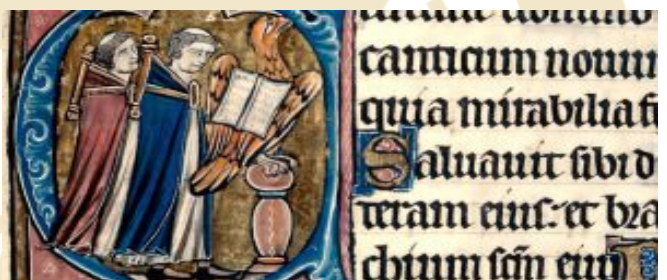 canticum nouum
quia mirabilia fe
Saluauit sibi d
teram eius: et bra
chium scm eius